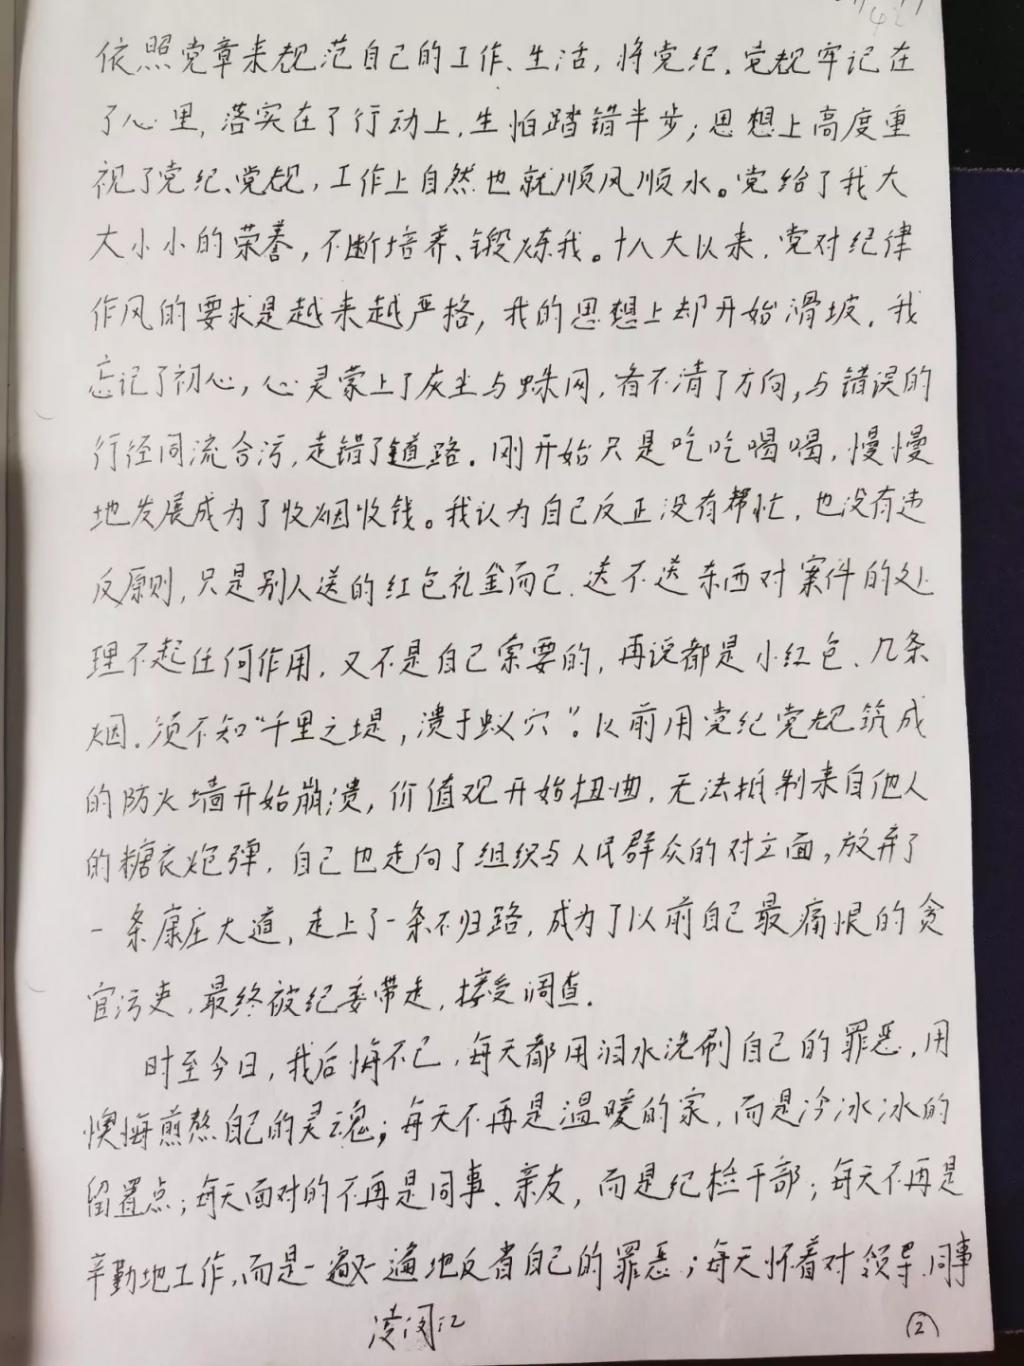 依照党章来规范自己的工作、生活，将党纪、党规牢记在
了心里，落实在了行动上，生怕踏错半步；思想上高度重
视了党纪、党规，工作上自然也就顺风顺水。党给了我大
大小小的荣誉，不断培养、锻炼我。十八大以来，党对纪律
作风的要求是越来越严格，我的思想上却开始滑坡，我
忘记了初心，心灵蒙上了灰尘与蛛网，看不清了方向，与错误的
行径同流合污，走错了道路。刚开始只是吃吃喝喝，慢慢
地发展成为了收烟收钱。我认为自己反正没有帮忙，也没有违
反原则，只是别人送的红包礼金而已，送不送东西对案件的处
理不起任何作用，又不是自己索要的，再说都是小红包、几条
烟。须不知“千里之堤，溃于蚁穴”。以前用党纪党规筑成
的防火墙开始崩溃，价值观开始扭曲，无法抵制来自他人
的糖衣炮弹，自己也走向了组织与人民群众的对立面，放弃了
一条康庄大道，走上了一条不归路，成为了以前自己最痛恨的贪
官污吏，最终被纪委带走，接受调查。
时至今日，我后悔不已，每天都用泪水洗刷自己的罪恶，用
懊悔煎熬自己的灵魂；每天不再是温暖的家，而是冷冰冰的
留置点；每天面对的不再是同事、亲友，而是纪检干部；每天不再是
辛勤地工作，而是一遍又一遍地反省自己的罪恶；每天怀着对领导、同事
②